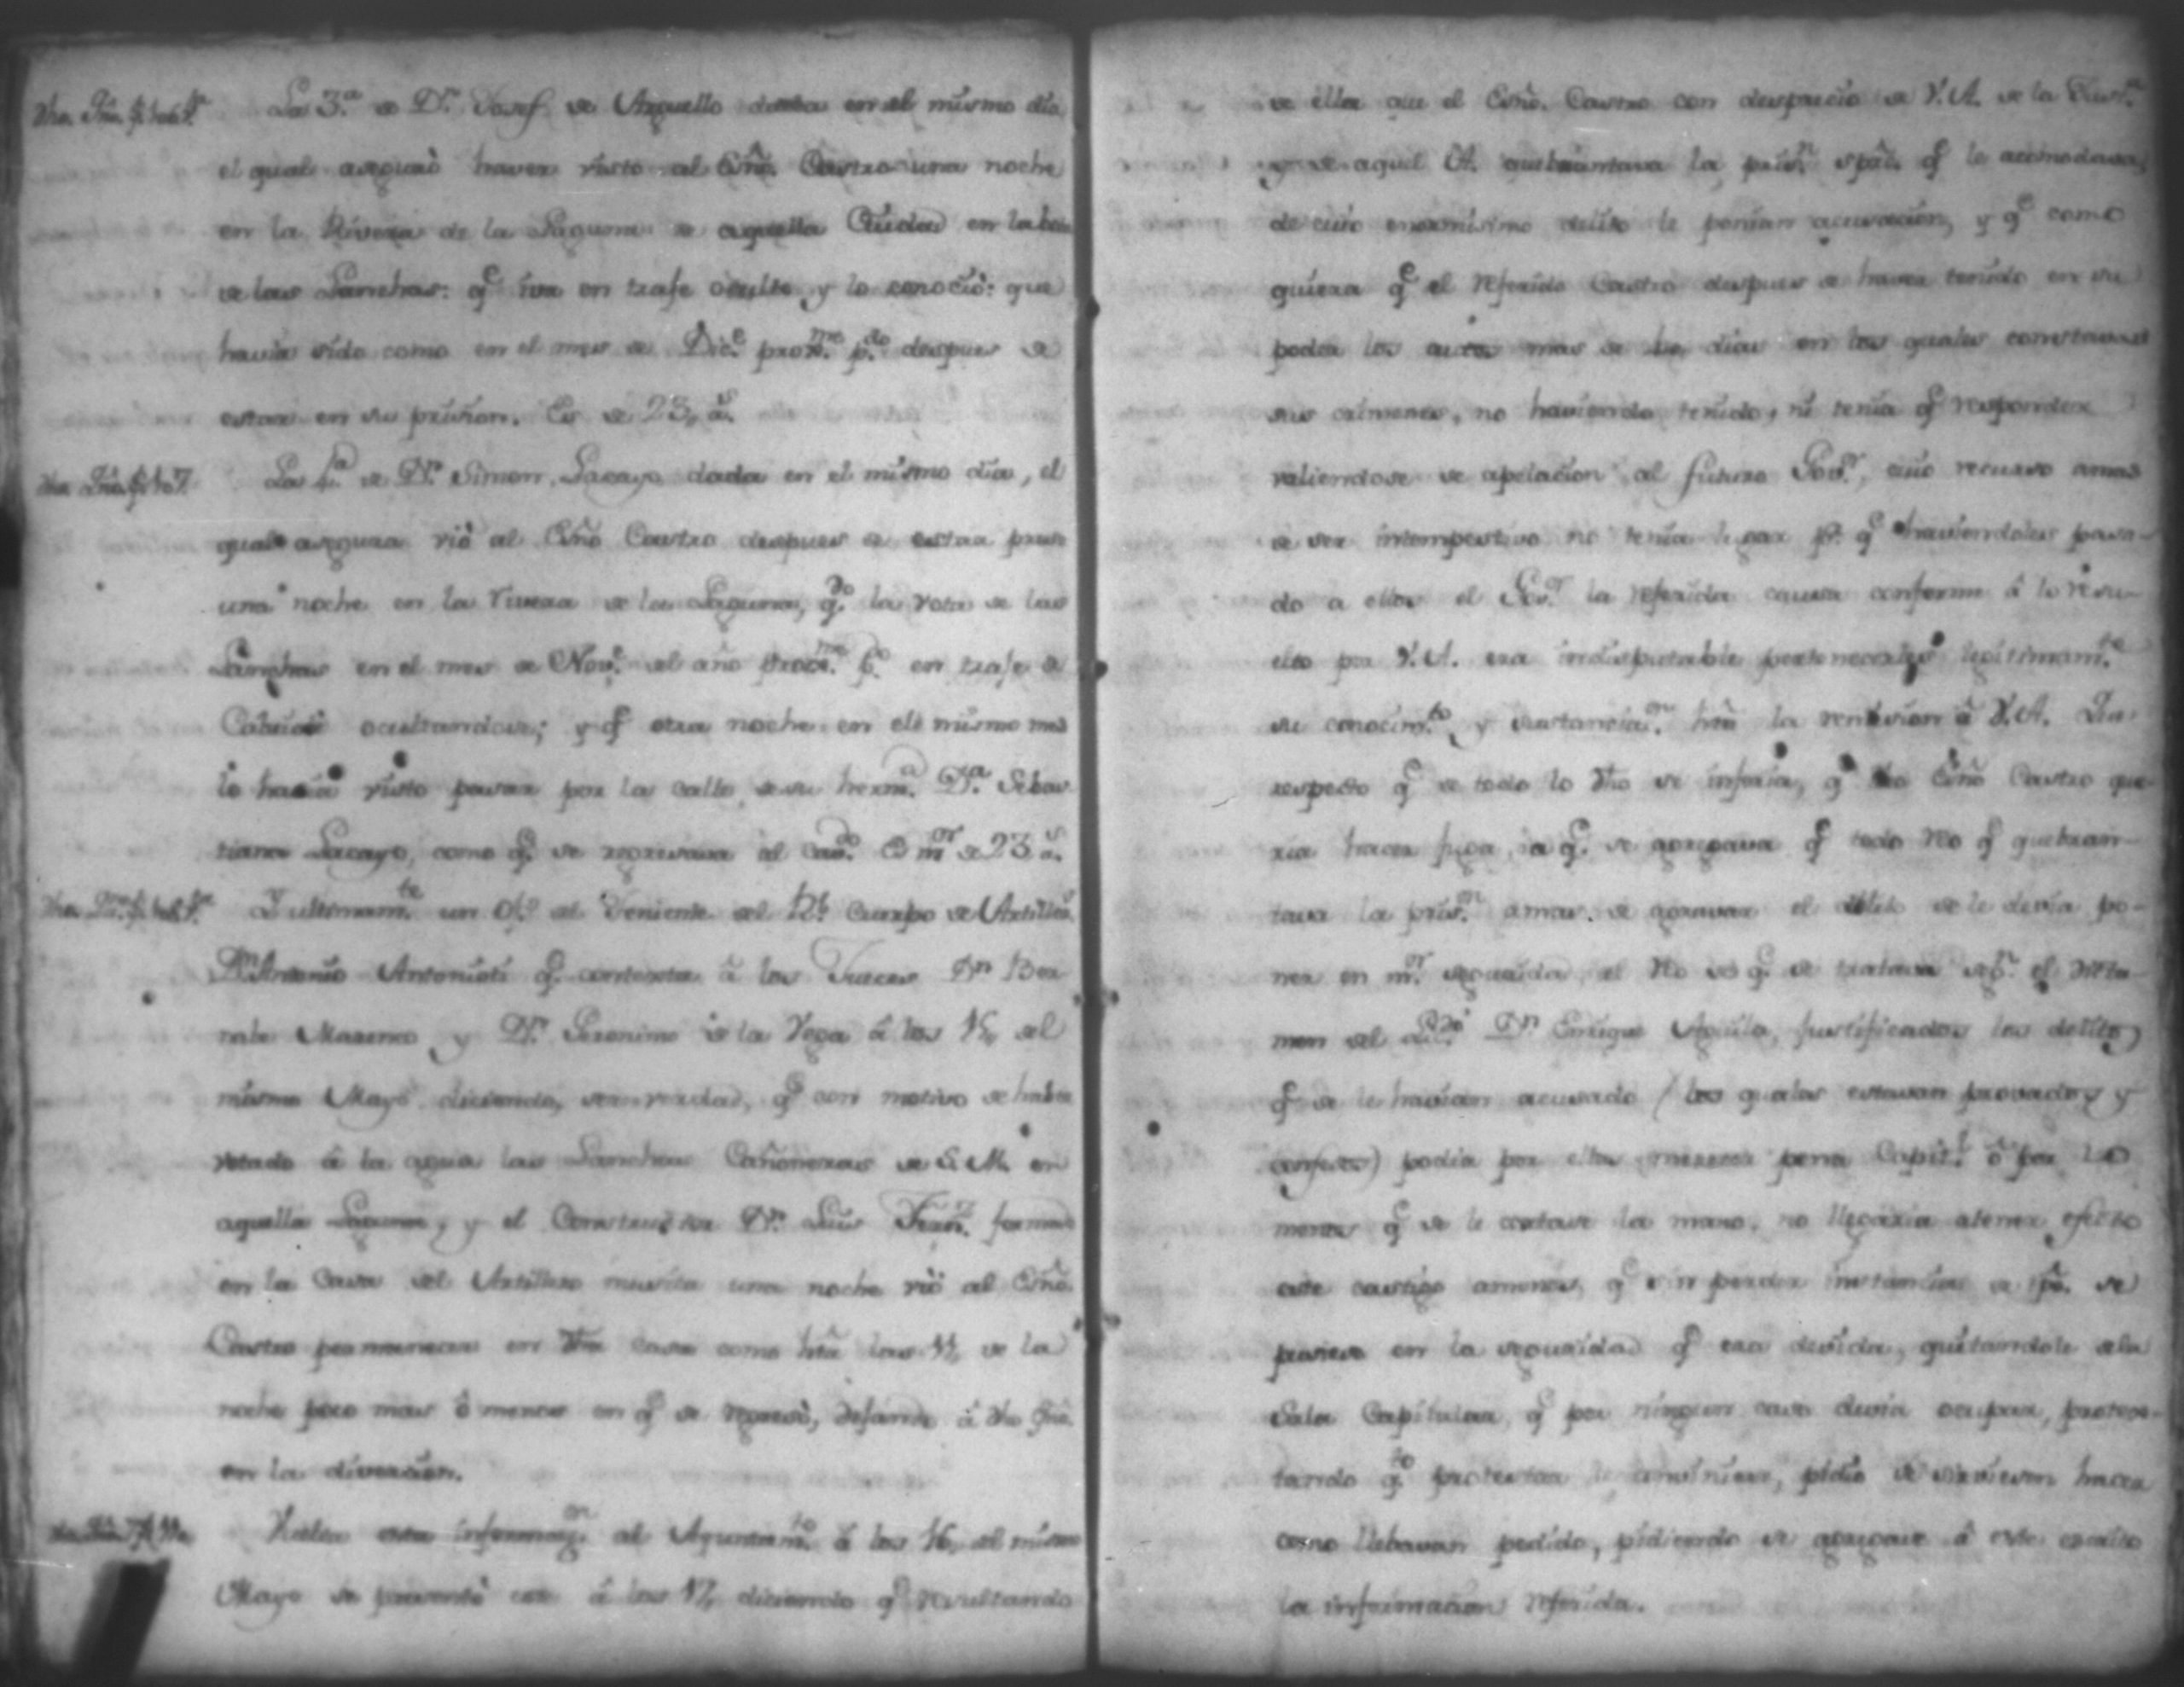 La 3.ª de D.n Josef de Arguello dada en el mismo dia
el qual aseguró haver visto al Esño. Castro una noche
en la Rivera de la Laguna de aquella Ciudad en
de las Lanchas: q.e iva en traje oculto y lo conoció: que
havia sido como en el mes de Dic.e prox.mo p.do despues de
estar en su prision. Es de 23, a.s
La 4.ª de D.n Simon Lacayo dada en el mismo dia, el
qual asegura vió al Esño Castro despues de estar preso
una noche en la rivera de la Laguna, q.do la vota de las
Lanchas en el mes de Nov.e del año prox.mo p.o en traje de
ocultandose; y q.e otra noche en el mismo mes
lo havia visto pasar por la calle de su herm.a D.ª Sebas
tiana Lacayo, como q.e se regresava al Es m.or de 23 a.s
Y ultimam.te un of.o al Teniente del R.l Cuerpo de Artill.s
D.n Antonio Antonioti q.e contexta á los Jueces D.n Ber
nabe Marenco y D.n Geronimo de la Vega á los 15, del
mismo Mayo diciendo, ser verdad, q.e con motivo de haber
votado á la agua las Lanchas Cañoneras de S. M. en
aquella Laguna, y el Constructor D.n Luis Fern.z
en la Casa del Artillero una noche vió al Esño.
Castro permanecer en dha casa como hta las 11, de la
noche poco mas ó menos en q.e se regresó, dejando á dho
en la diversion.
Hecha esta informaz.on al Ayuntam.to á los 16, del mismo
Mayo se presentó este á los 17, diciendo q.e resultando
de ella que el Esño. Castro con desprecio de V.A. de la Just.a
y de aquel A. quebrantava la pris.n q.e le acomodava,
de cuio enormisimo delito le ponian acusacion, y q.e como
quiera q.e el referido Castro despues de haver tenido en su
poder los autos mas de dias en los quales constavan
sus crimenes, no haviendo tenido, ni tenia q.e responder
valiendose de apelacion al futuro Gov.r, cuio recurso amas
de ser intempestivo no tenia lugar p.r q.e haviendoles pasa-
do a ellos el Gov.or la referida causa conforme á lo resu-
elto por V.A. era indisputable pertenecerles legitimam.te
su conocim.to y sustancia.on hta la remision á V.A. Qu
respecto q.e de todo lo dho se inferia, q.e dho Esño Castro que-
ria hacer fuga, a q.e se agregava q.e todo reo q.e quebran-
tava la pris.on amas de agravar el delito se le devia po-
ner en m.or seguridad, el reo de q.e se tratava seg.n el dicta-
men del Lic.do D.n Enrique Aguila, justificados los delitos
q.e se le havian acusado (los quales estavan provados y
confesos) podia por ellos merecer pena Capit.l ó por lo
menos q.e se le cortase la mano, no llegaria atener efecto
este castigo amenos q.e sin perder instancia de tpo. se
pusiese en la seguridad q.e era devida, quitandole dela
Sala Capitular q.e por ningun caso devia ocupar, protes-
tando q.to protestar le conviniese, pidio se sirviesen hacer
como llebavan pedido, pidiendo se agregase á este escrito
la informacion referida.